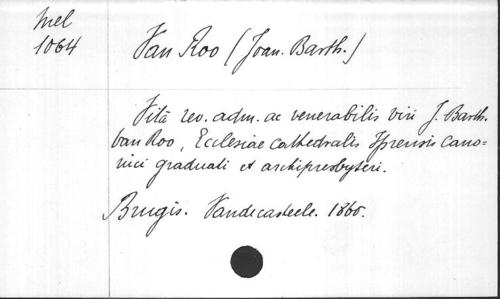 Mel
1064
Van Roo (Joan. Barth.)
Vitâ rev. adm. ac venerabilis viri J. Barth.
van Roo, Ecclesiae cathedralis Yprensis cano=
nici graduati et archipresbyteri.
Brugis. Vandecasteele. 1860.